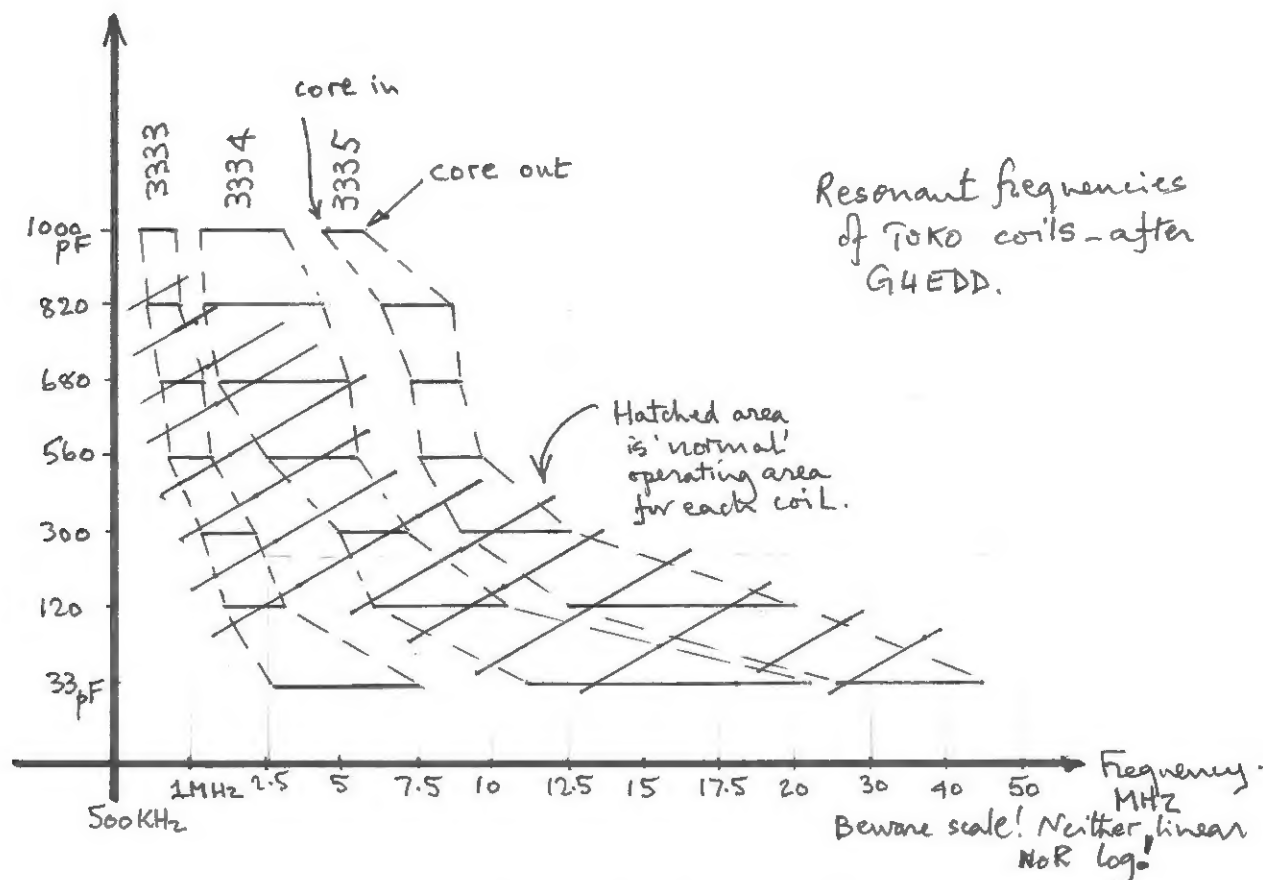 core in
3333
3334
3335
core out
Resonant frequencies
of TOKO coils - after
G4EDD.
1000
pF
820
680
560
300
120
33pF
Hatched area
is 'normal'
operating area
for each coil.
500KHz
1MHz
2.5
5
7.5
10
12.5
15
17.5
20
30
40
50
Frequency.
MHz
Beware scale! Neither linear
NOR log!